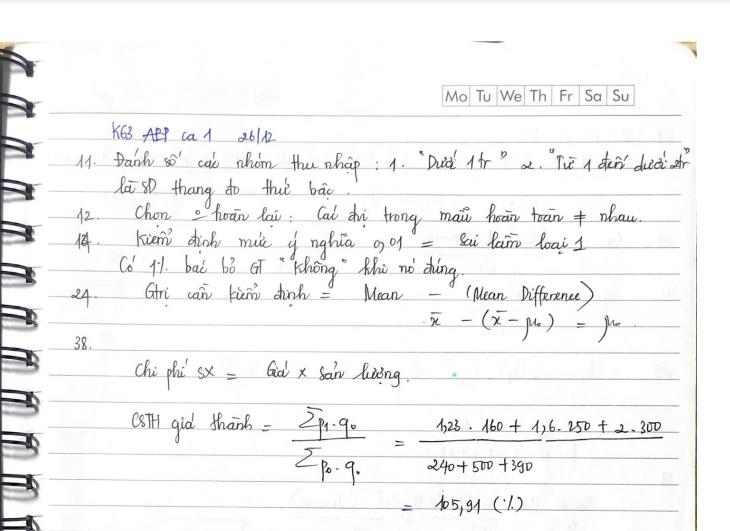 Mo Tu We Th Fr Sa Su
K63 AEP ca 1 26/12
11. Đánh số các nhóm thu nhập : 1. "Dưới 1tr" 2. "Từ 1 đến dưới 2tr"
là SD thang đo thứ bậc.
12. Chọn 0 hoàn lại: Các đvị trong mẫu hoàn toàn ≠ nhau.
Kiểm định mức ý nghĩa 0,01 = Sai lầm loại 1
Có 1% bác bỏ GT "Không" khi nó đúng.
24. Gtrị cần kiểm định = Mean - (Mean Difference)
x̄ - (x̄ - μ₀) = μ₀
38.
Chi phí SX = Giá x Sản lượng.
CSTH giá thành = Σp₁.q₀ / Σp₀.q₀ = 1,23 . 160 + 1,6. 250 + 2. 300 / 240+500+390
= 105,91 (%)